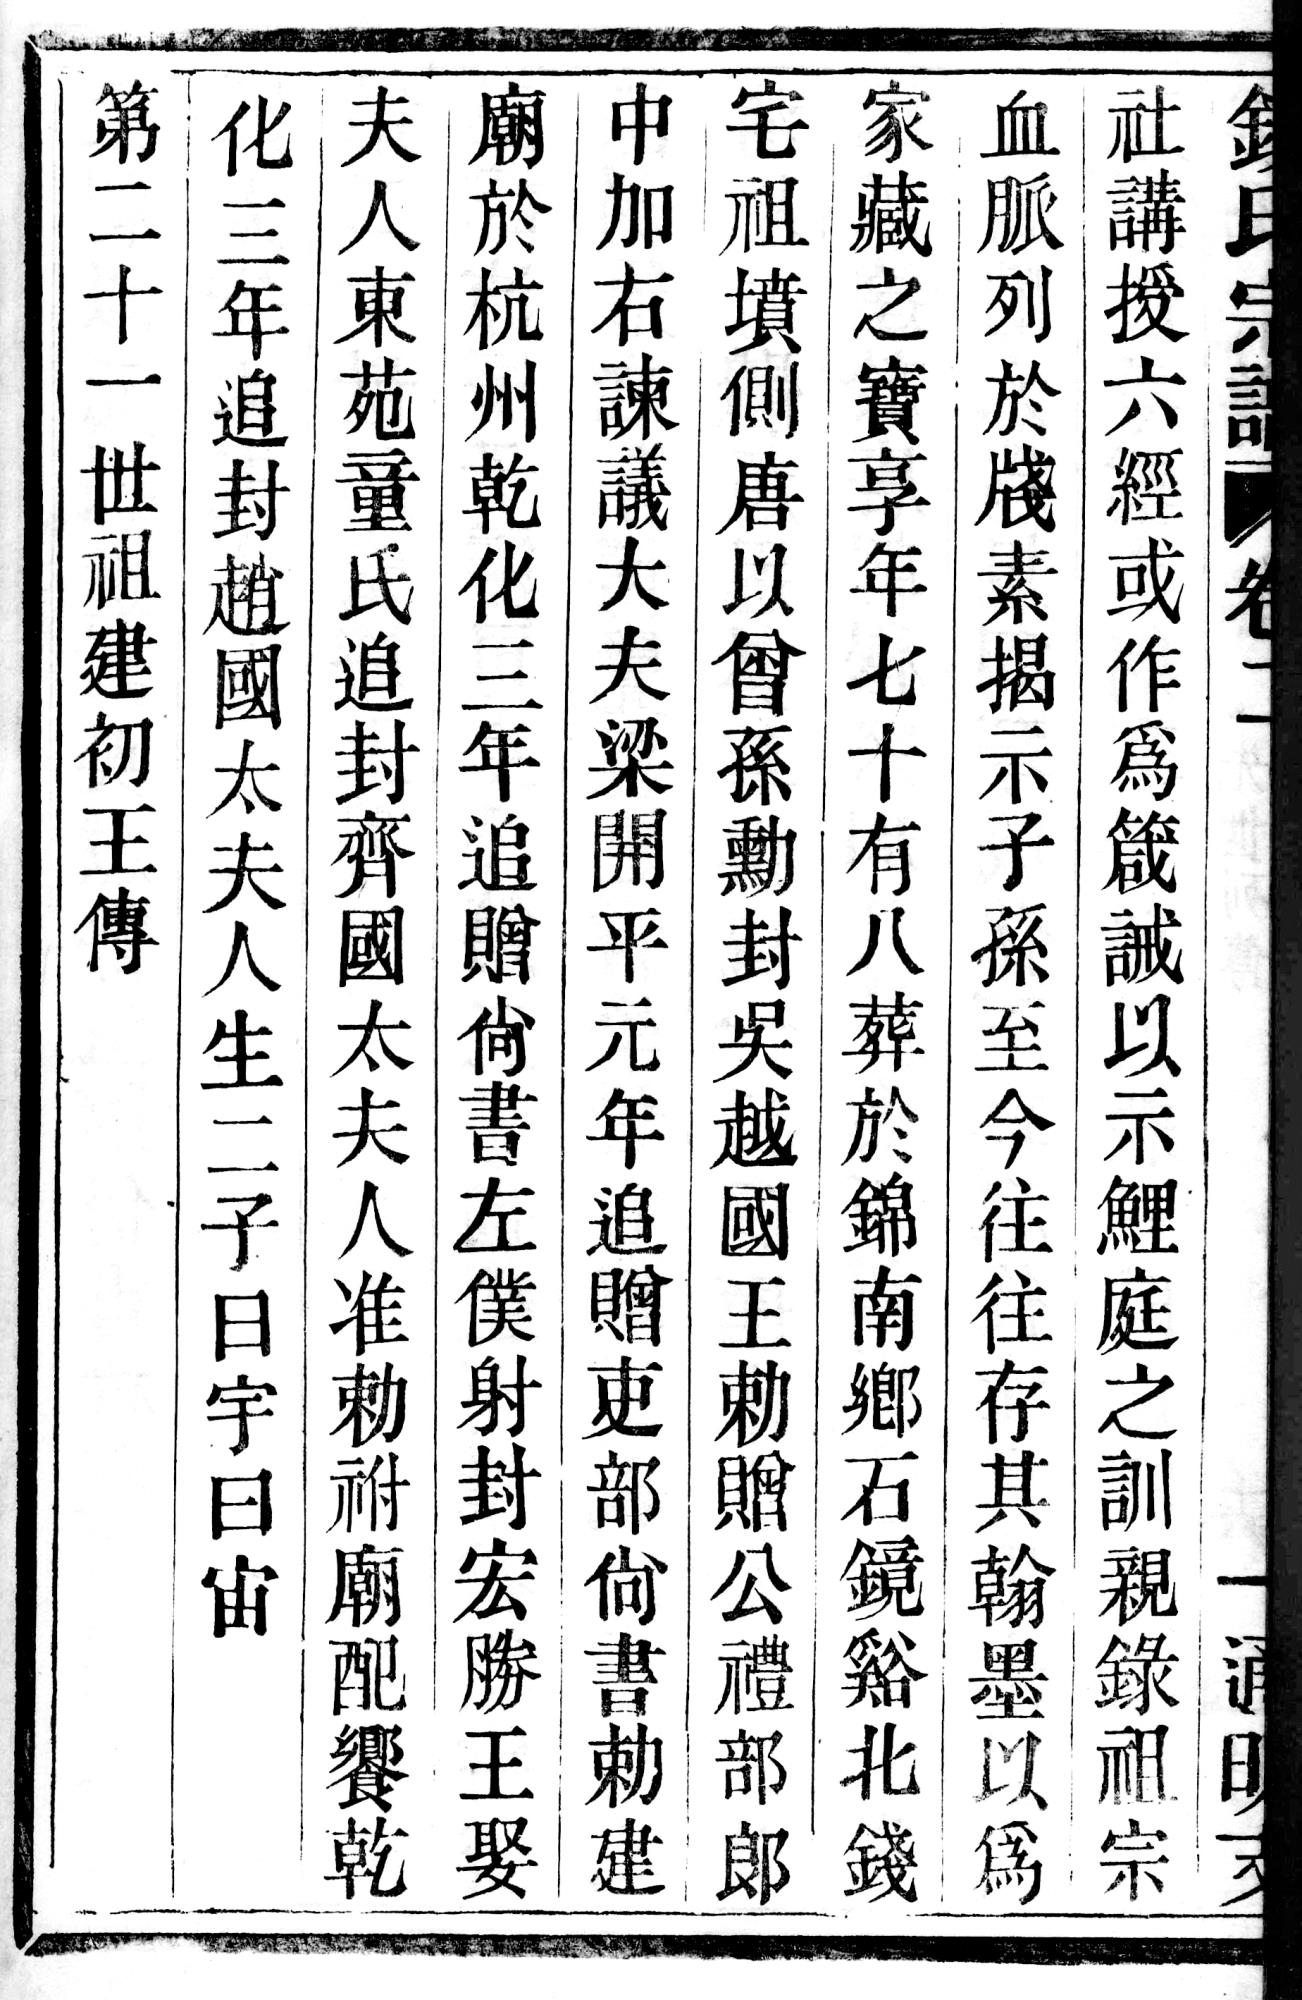 錢氏宗譜 卷二 一 通明
社講授六經或作爲箴誡以示鯉庭之訓親錄祖宗
血脈列於牋素揭示子孫至今往往存其翰墨以爲
家藏之寶享年七十有八葬於錦南鄉石鏡谿北錢
宅祖墳側唐以曾孫勳封吳越國王勅贈公禮部郎
中加右諫議大夫梁開平元年追贈吏部尙書勅建
廟於杭州乾化三年追贈尙書左僕射封宏勝王娶
夫人東苑童氏追封齊國太夫人准勅祔廟配饗乾
化三年追封趙國太夫人生二子曰宇曰宙
第二十一世祖建初王傳